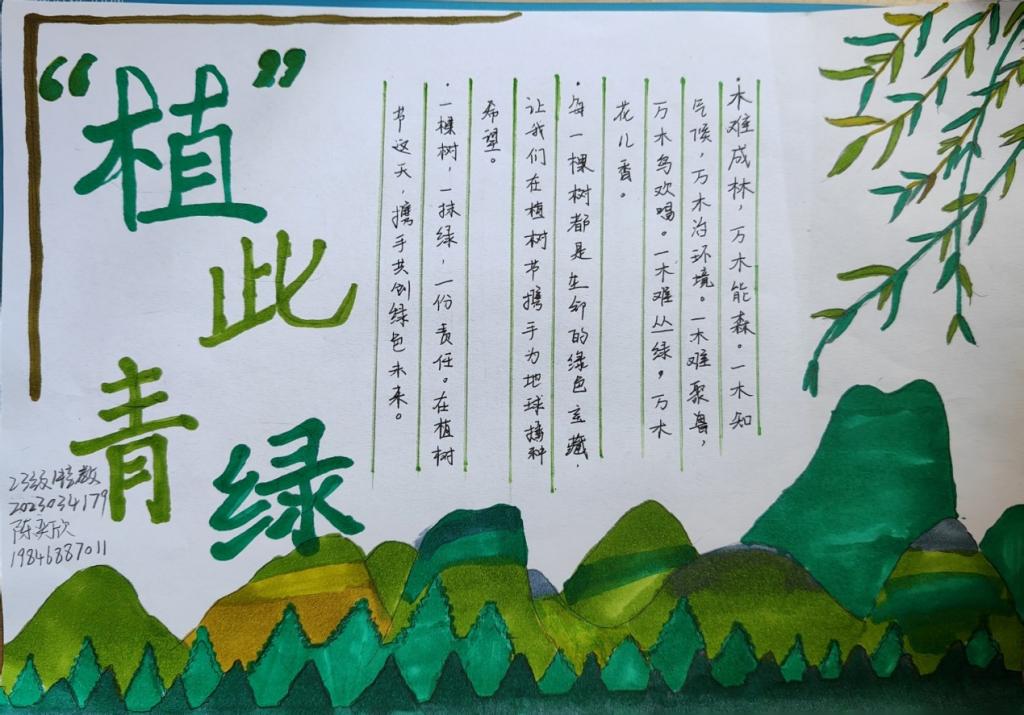 “植”
此
青
绿
·木难成林，万木能森。一木知
气候，万木治环境。一木难聚兽，
万木鸟欢唱。一木难丛绿，万木
花儿香。
·每一棵树都是生命的绿色宝藏，
让我们在植树节携手为地球播种
希望。
·一棵树，一抹绿，一份责任。在植树
节这天，携手共创绿色未来。
23级特教
2023034179
陈奕欣